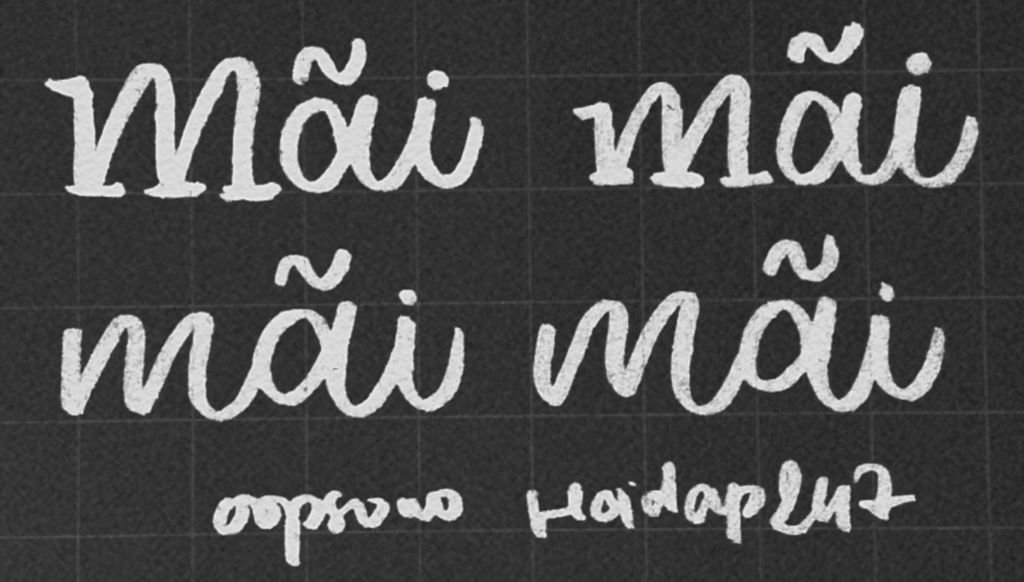 Mãi mãi
mãi mãi
oopsowo